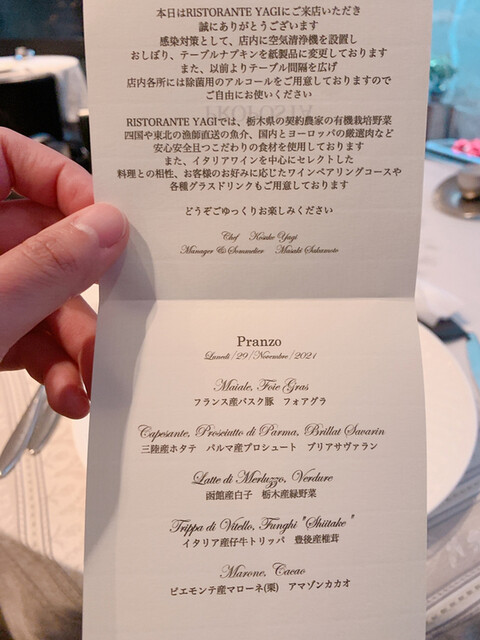 本日はRISTORANTE YAGIにご来店いただき
誠にありがとうございます
感染対策として、店内に空気清浄機を設置し
おしぼり、テーブルナプキンを紙製品に変更しております
また、以前よりテーブル間隔を広げ
店内各所には除菌用のアルコールをご用意しておりますので
ご自由にお使いください
PROPOSTA
RISTORANTE YAGIでは、栃木県の契約農家の有機栽培野菜
四国や東北の漁師直送の魚介、国内とヨーロッパの厳選肉など
安心安全且つこだわりの食材を使用しております
また、イタリアワインを中心にセレクトした
料理との相性、お客様のお好みに応じたワインペアリングコースや
各種グラスドリンクもご用意しております
どうぞごゆっくりお楽しみください
Chef Kosuke Yagi
Manager & Sommelier Masaki Sakamoto
Pranzo
Lunedi/29/Novembre/2021
Maiale, Foie Gras
フランス産バスク豚 フォアグラ
Capesante, Prosciatto di Parma, Brillat Savarin
三陸産ホタテ パルマ産プロシュート ブリアサヴァラン
Latte di Merluzzo, Verdure
函館産白子 栃木産緑野菜
Trippa di Vitello, Funghi "Shiitake"
イタリア産仔牛トリッパ 豊後産椎茸
Marone, Cacao
ピエモンテ産マローネ(栗) アマゾンカカオ